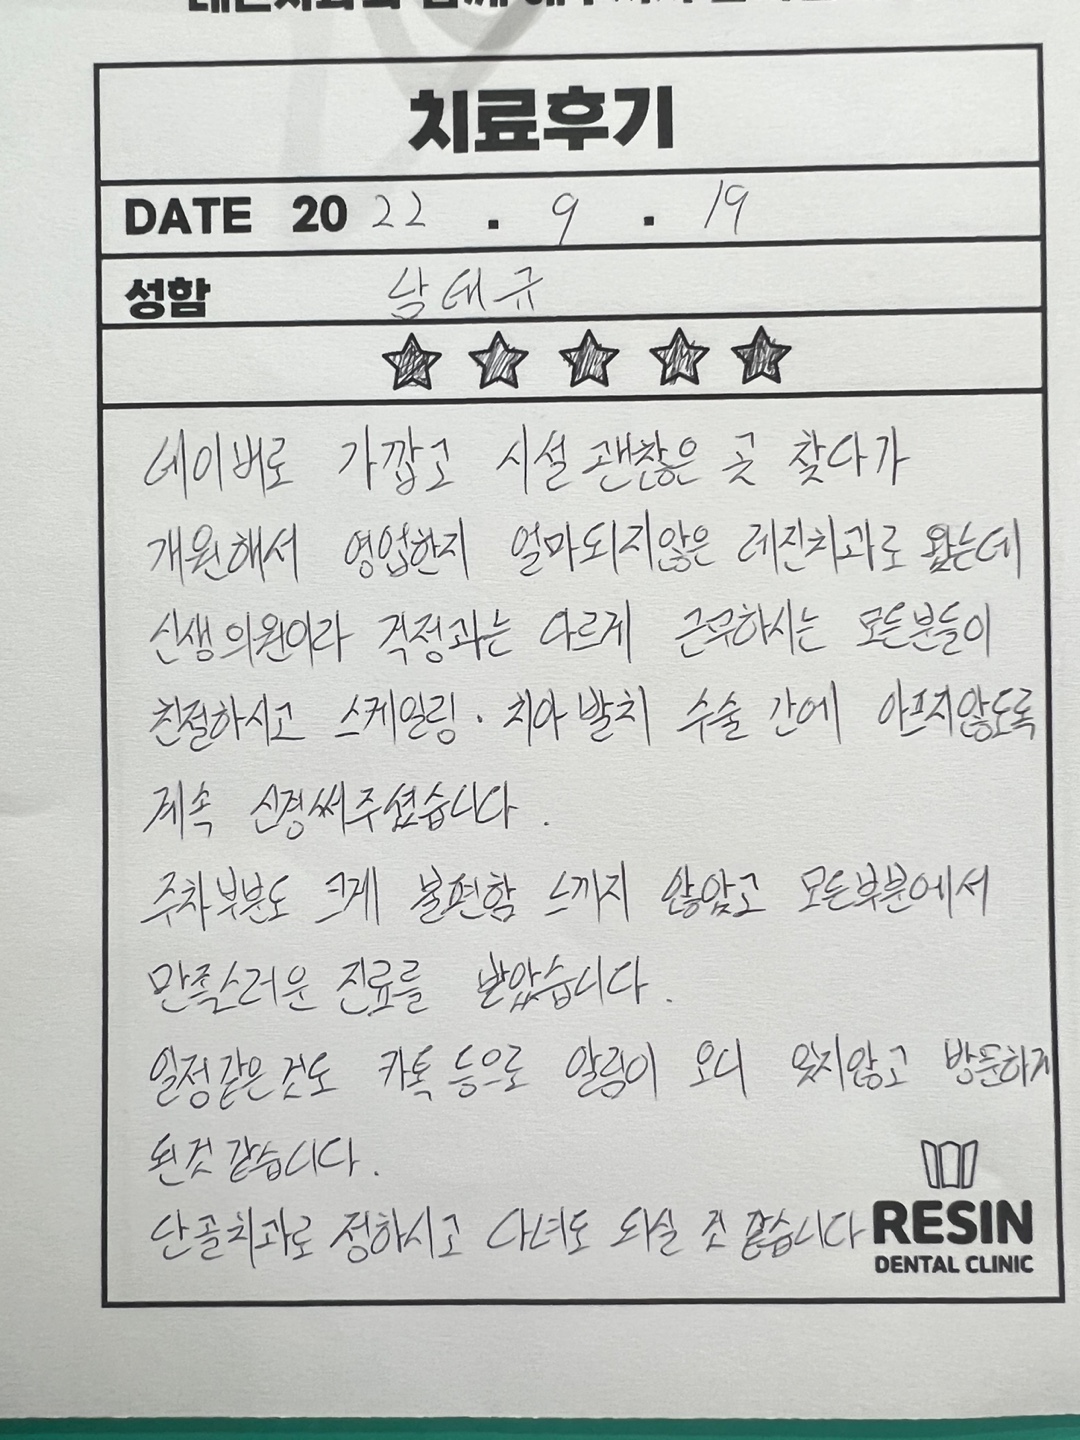 치료후기
DATE 2022 . 9 . 19
성함 남태규
네이버로 가깝고 시설 괜찮은 곳 찾다가
개원해서 영업한지 얼마되지않은 레진치과로 왔는데
신생의원이라 걱정과는 다르게 근무하시는 모든분들이
친절하시고 스케일링 · 치아발치 수술 간에 아프지않도록
계속 신경써주셨습니다 .
주차부분도 크게 불편함 느끼지 않았고 모든부분에서
만족스러운 진료를 받았습니다 .
일정같은것도 카톡 등으로 알림이 오니 잊지않고 방문하게
된것 같습니다 .
단골치과로 정하시고 다녀도 되실 것 같습니다
RESIN
DENTAL CLINIC